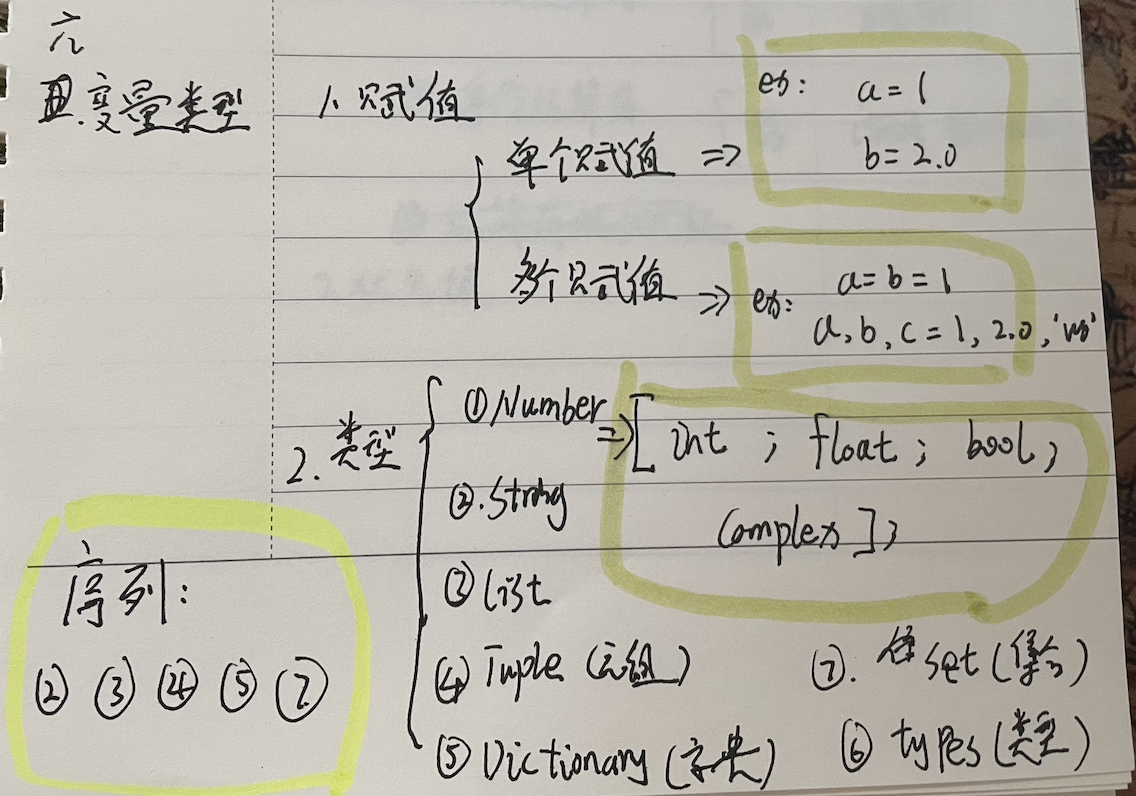 六
变量类型
1. 赋值
单个赋值 => ex: a = 1
b = 2.0
多个赋值 => ex: a = b = 1
a, b, c = 1, 2.0,
2. 类型
① Number => [ int ; float ; bool ;
complex ] ;
②. String
③ List
④ Tuple (元组)
⑤ Dictionary (字典)
⑥ types (类型)
⑦. set (集合)
序列:
② ③ ④ ⑤ ⑦